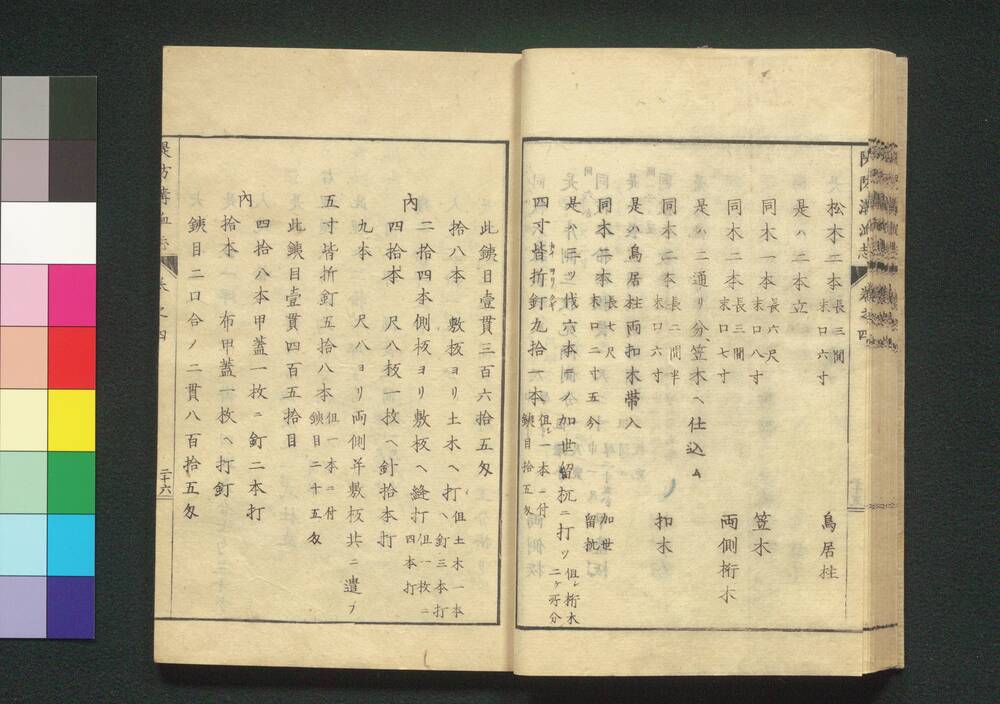 松木二本 長三間 末口六寸 鳥居柱
是ハ二本立
同木一本 長六尺 末口八寸 笠木
同木二本 長三間 末口七寸 両側桁木
是ハ二通リ分笠木ヘ仕込ム
同木二本 長二間半 末口六寸 扣木
是ハ鳥居柱両扣木帯入
同木 本 長七尺 末口二寸五分 加世留杭
是ハ 六本 加世留杭ニ打ツ 但シ桁木二ヶ所分
四寸皆折釘九拾一本 但シ一本ニ付鉄目拾五匁
此鉄目壹貫三百六拾五匁
内
拾八本 敷板ヨリ土木ヘ打 但土木一本ヘ釘三本打
二拾四本側板ヨリ敷板ヘ縫打 但一枚ニ四本打
四拾本 尺八板一枚ヘ針拾本打
九本 尺八ヨリ両側并敷板共ニ遣フ
五寸皆折釘五拾八本 但一本ニ付鉄目二十五匁
此鉄目壹貫四百五拾目
内
四拾八本甲蓋一枚ニ釘二本打
拾本 一 布甲蓋一枚ヘ打釘
鉄目二口合ノ二貫八百拾五匁
二十六